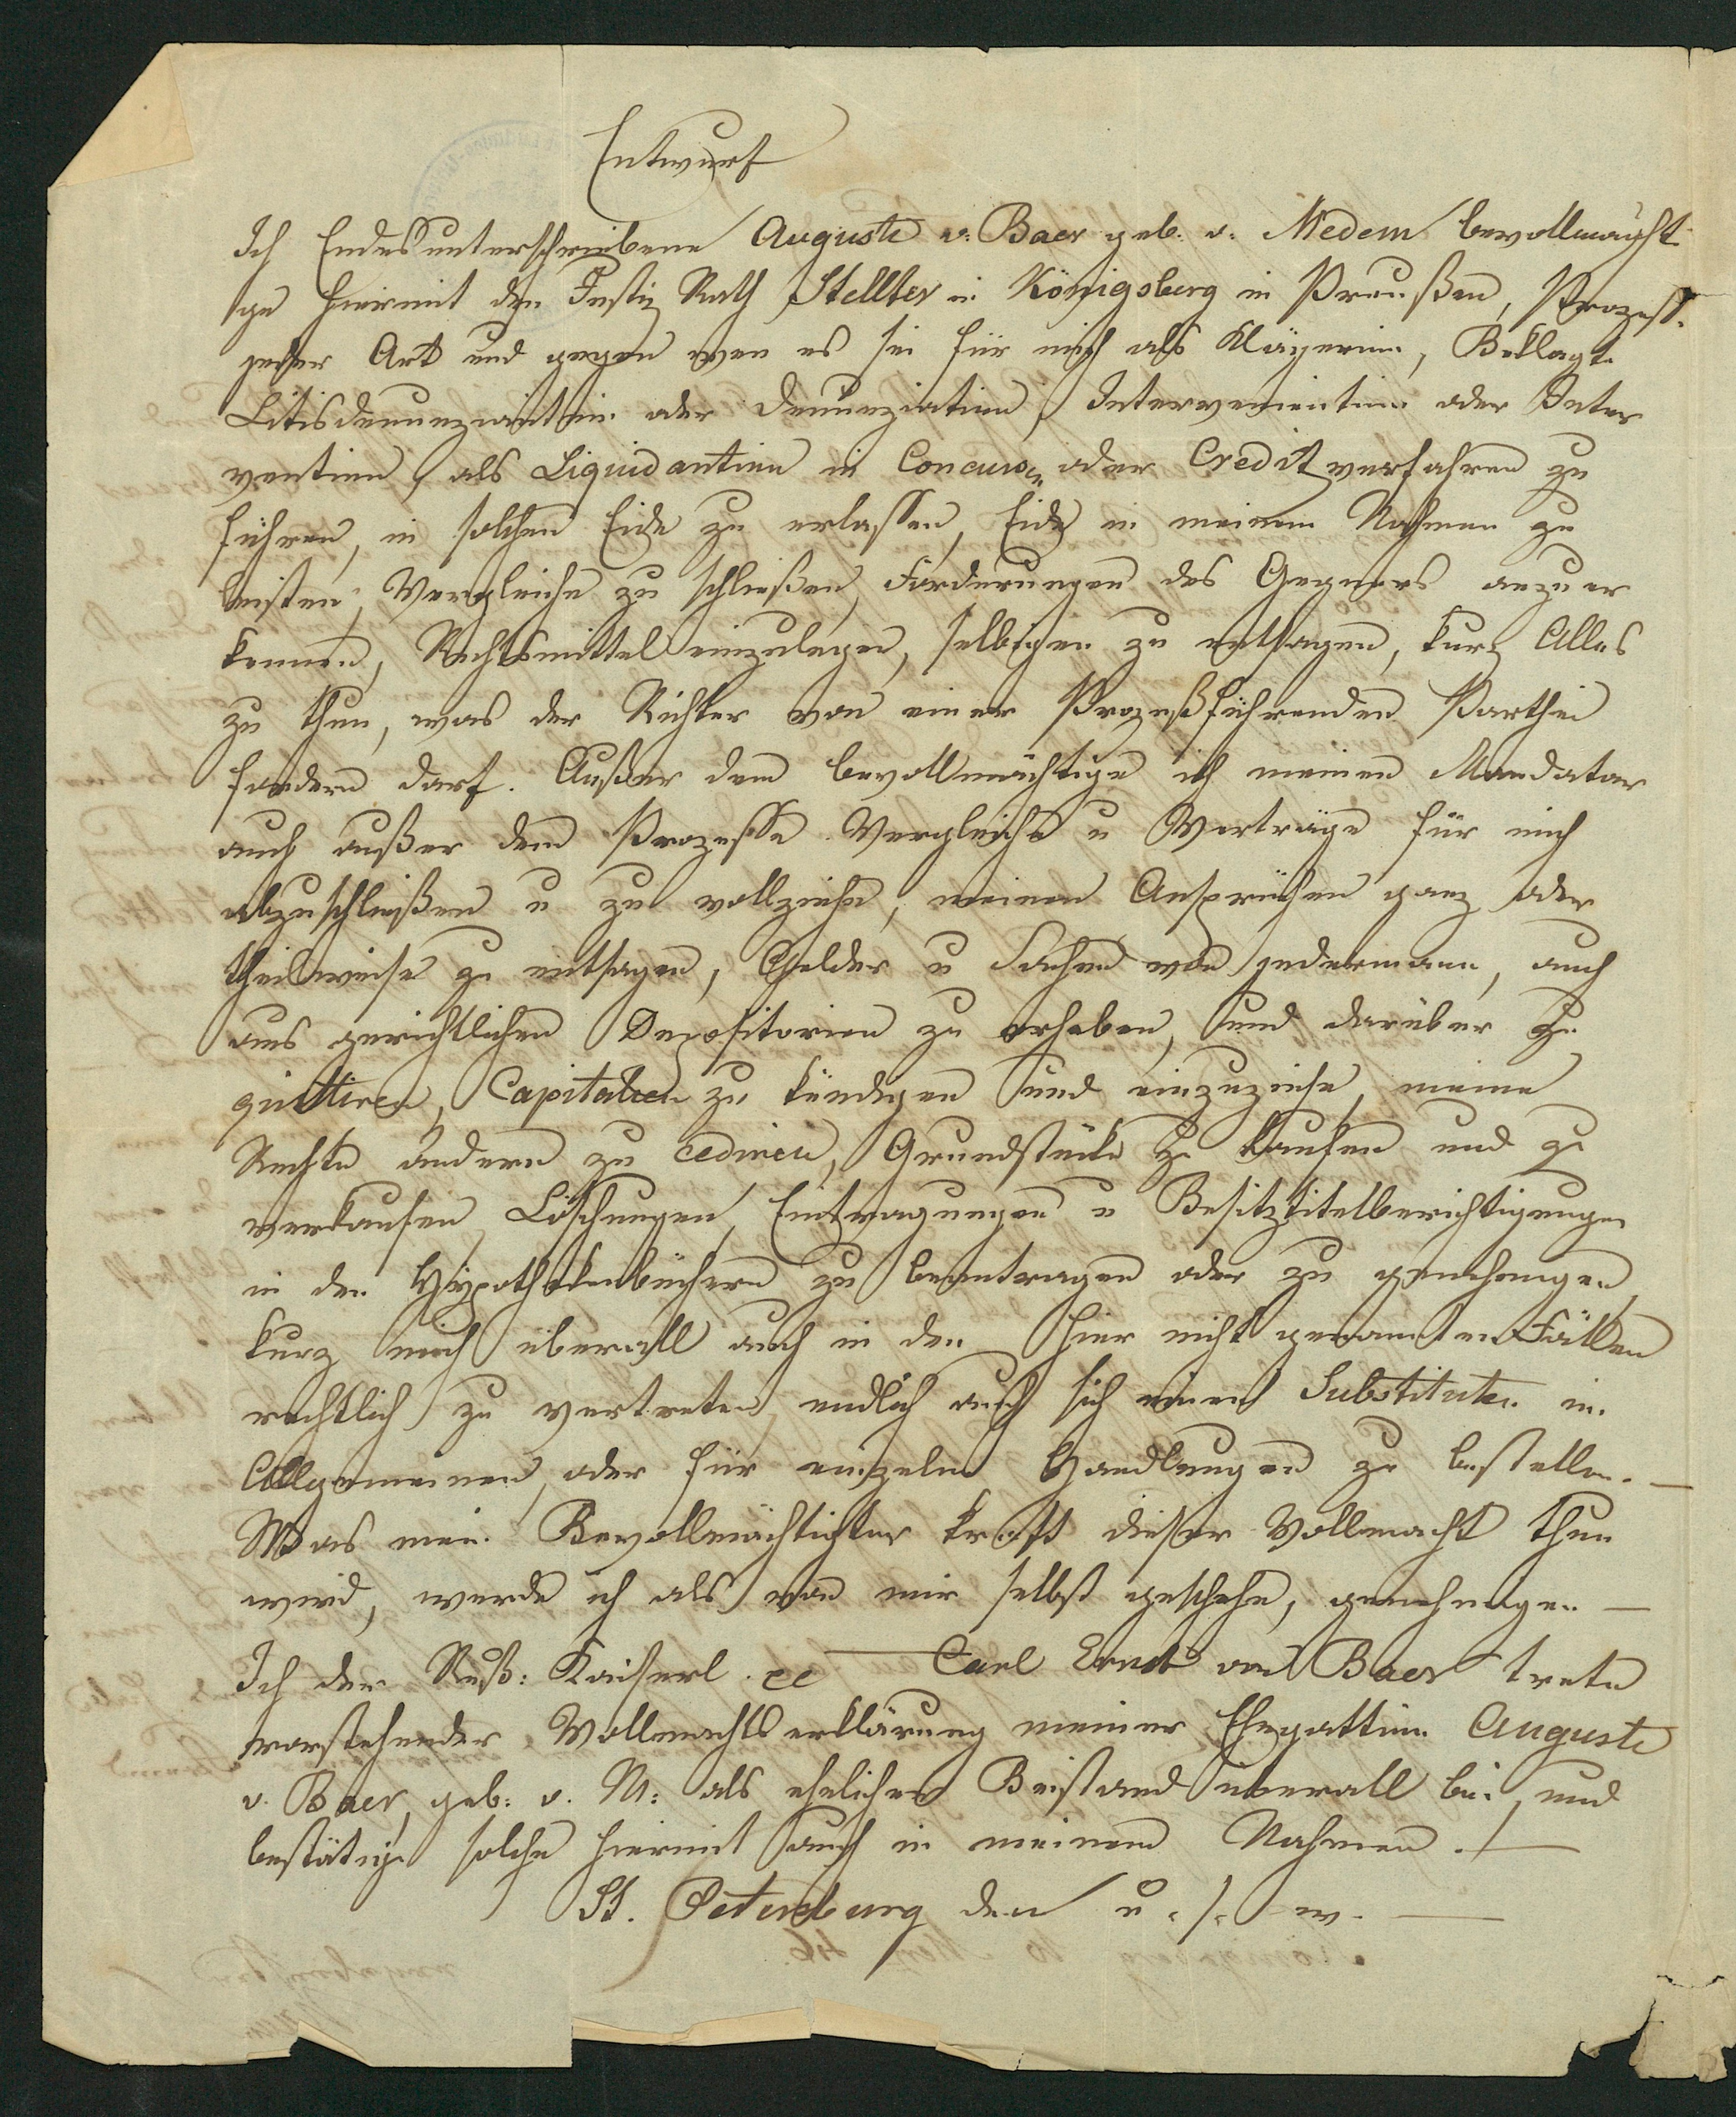 Entwurf
Ich Endesunterschriebene Auguste v. Baer geb. v. Medem bevollmächt
ge hiermit den Justiz Rath Stellter in Königsberg in Preußen, Prozesse
jeder Art und gegen wen es sei für mich als Klägerin, Beklagte
Litisdenunziantin oder Denunziatin, Intervenientin oder Inter
ventin, als Liquidantin in Concurs oder Creditverfahren zu
führen, in solchen Eide zu erlassen, Eide in meinem Nahmen zu
leisten, Vergleiche zu schließen, Forderungen des Gegners anzuer
kennen, Rechtsmittel einzulegen, selbigen zu entsagen, kurz Alles
zu thun, was der Richter von einer Prozeßführenden Parthei
fordern darf. Außer dem bevollmächtige ich meinen Mandatar
auch außer dem Prozesse Vergleiche u Verträge für mich
abzuschließen u zu vollziehn, meinen Ansprüchen ganz oder
theilweise zu entsagen, Gelder u Sachen von jedermann, auch
aus gerichtlichen Depositorien zu erheben, und darüber zu
quittiren, Capitalien zu kündigen und einzuziehn, meine
Rechte andern zu cediren, Grundstücke zu kaufen und zu
verkaufen, Löschungen, Eintragungen u Besitztitelberichtigungen
in den Hypothekenbüchern zu beantragen oder zu genehmigen,
kurz mich überall auch in den hier nicht genannten Fällen
rechtlich zu vertreten, endlich auch sich einen Substituten im
Allgemeinen, oder für einzelne Handlungen zu bestellen. —
Was mein Bevollmächtigter kraft dieser Vollmacht thun
wird, werde ich als von mir selbst geschehn, genehmigen —
Ich der Ruß: Kaiserl. — Carl Ernst von Baer trete
vorstehender Vollmachtserklärung meiner Ehegattin Auguste
v. Baer, geb. v. M: als ehelicher Beistand überall bei, und
bestätige solche hiermit auch in meinem Nahmen. —
St. Petersburg den u. s. w. —